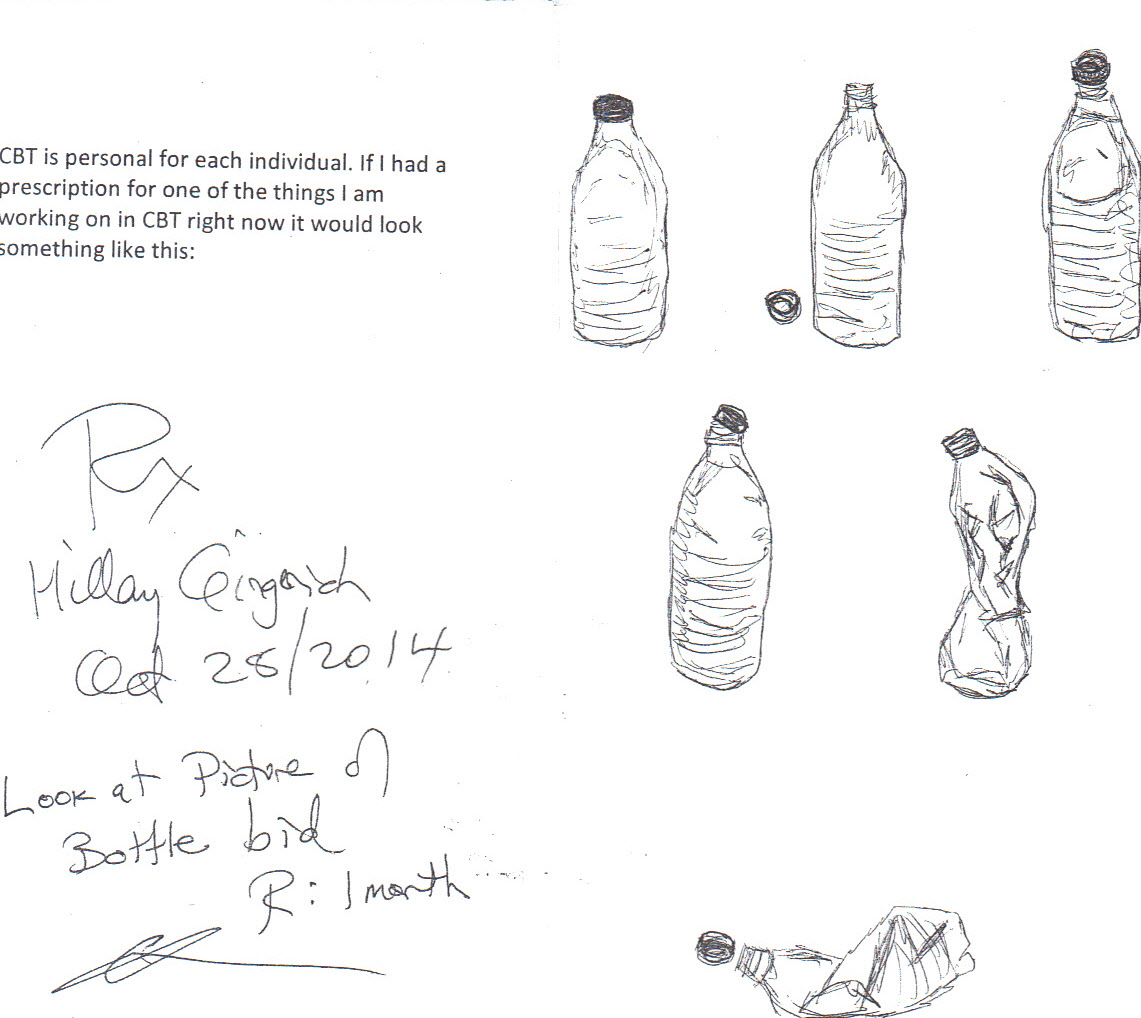 CBT is personal for each individual. If I had a
prescription for one of the things I am
working on in CBT right now it would look
something like this:
Rx
Hillary Gingerich
Oct 28/2014
Look at Picture of
Bottle bid
R: 1 month